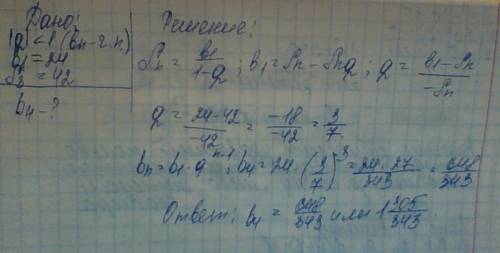 Дано:
|q| < 1 (bn - г.п.)
b1 = 24
S = 42
b4 - ?
Решение:
Sn = b1/1-q ; b1 = Sn - Snq ; q = b1-Sn/-Sn
q = 24-42/-42 = -18/-42 = 3/7
bn = b1 · q^n-1 ; b4 = 24 · (3/7)^3 = 24 · 27/343 = 648/343
Ответ: b4 = 648/343 или 1 305/343